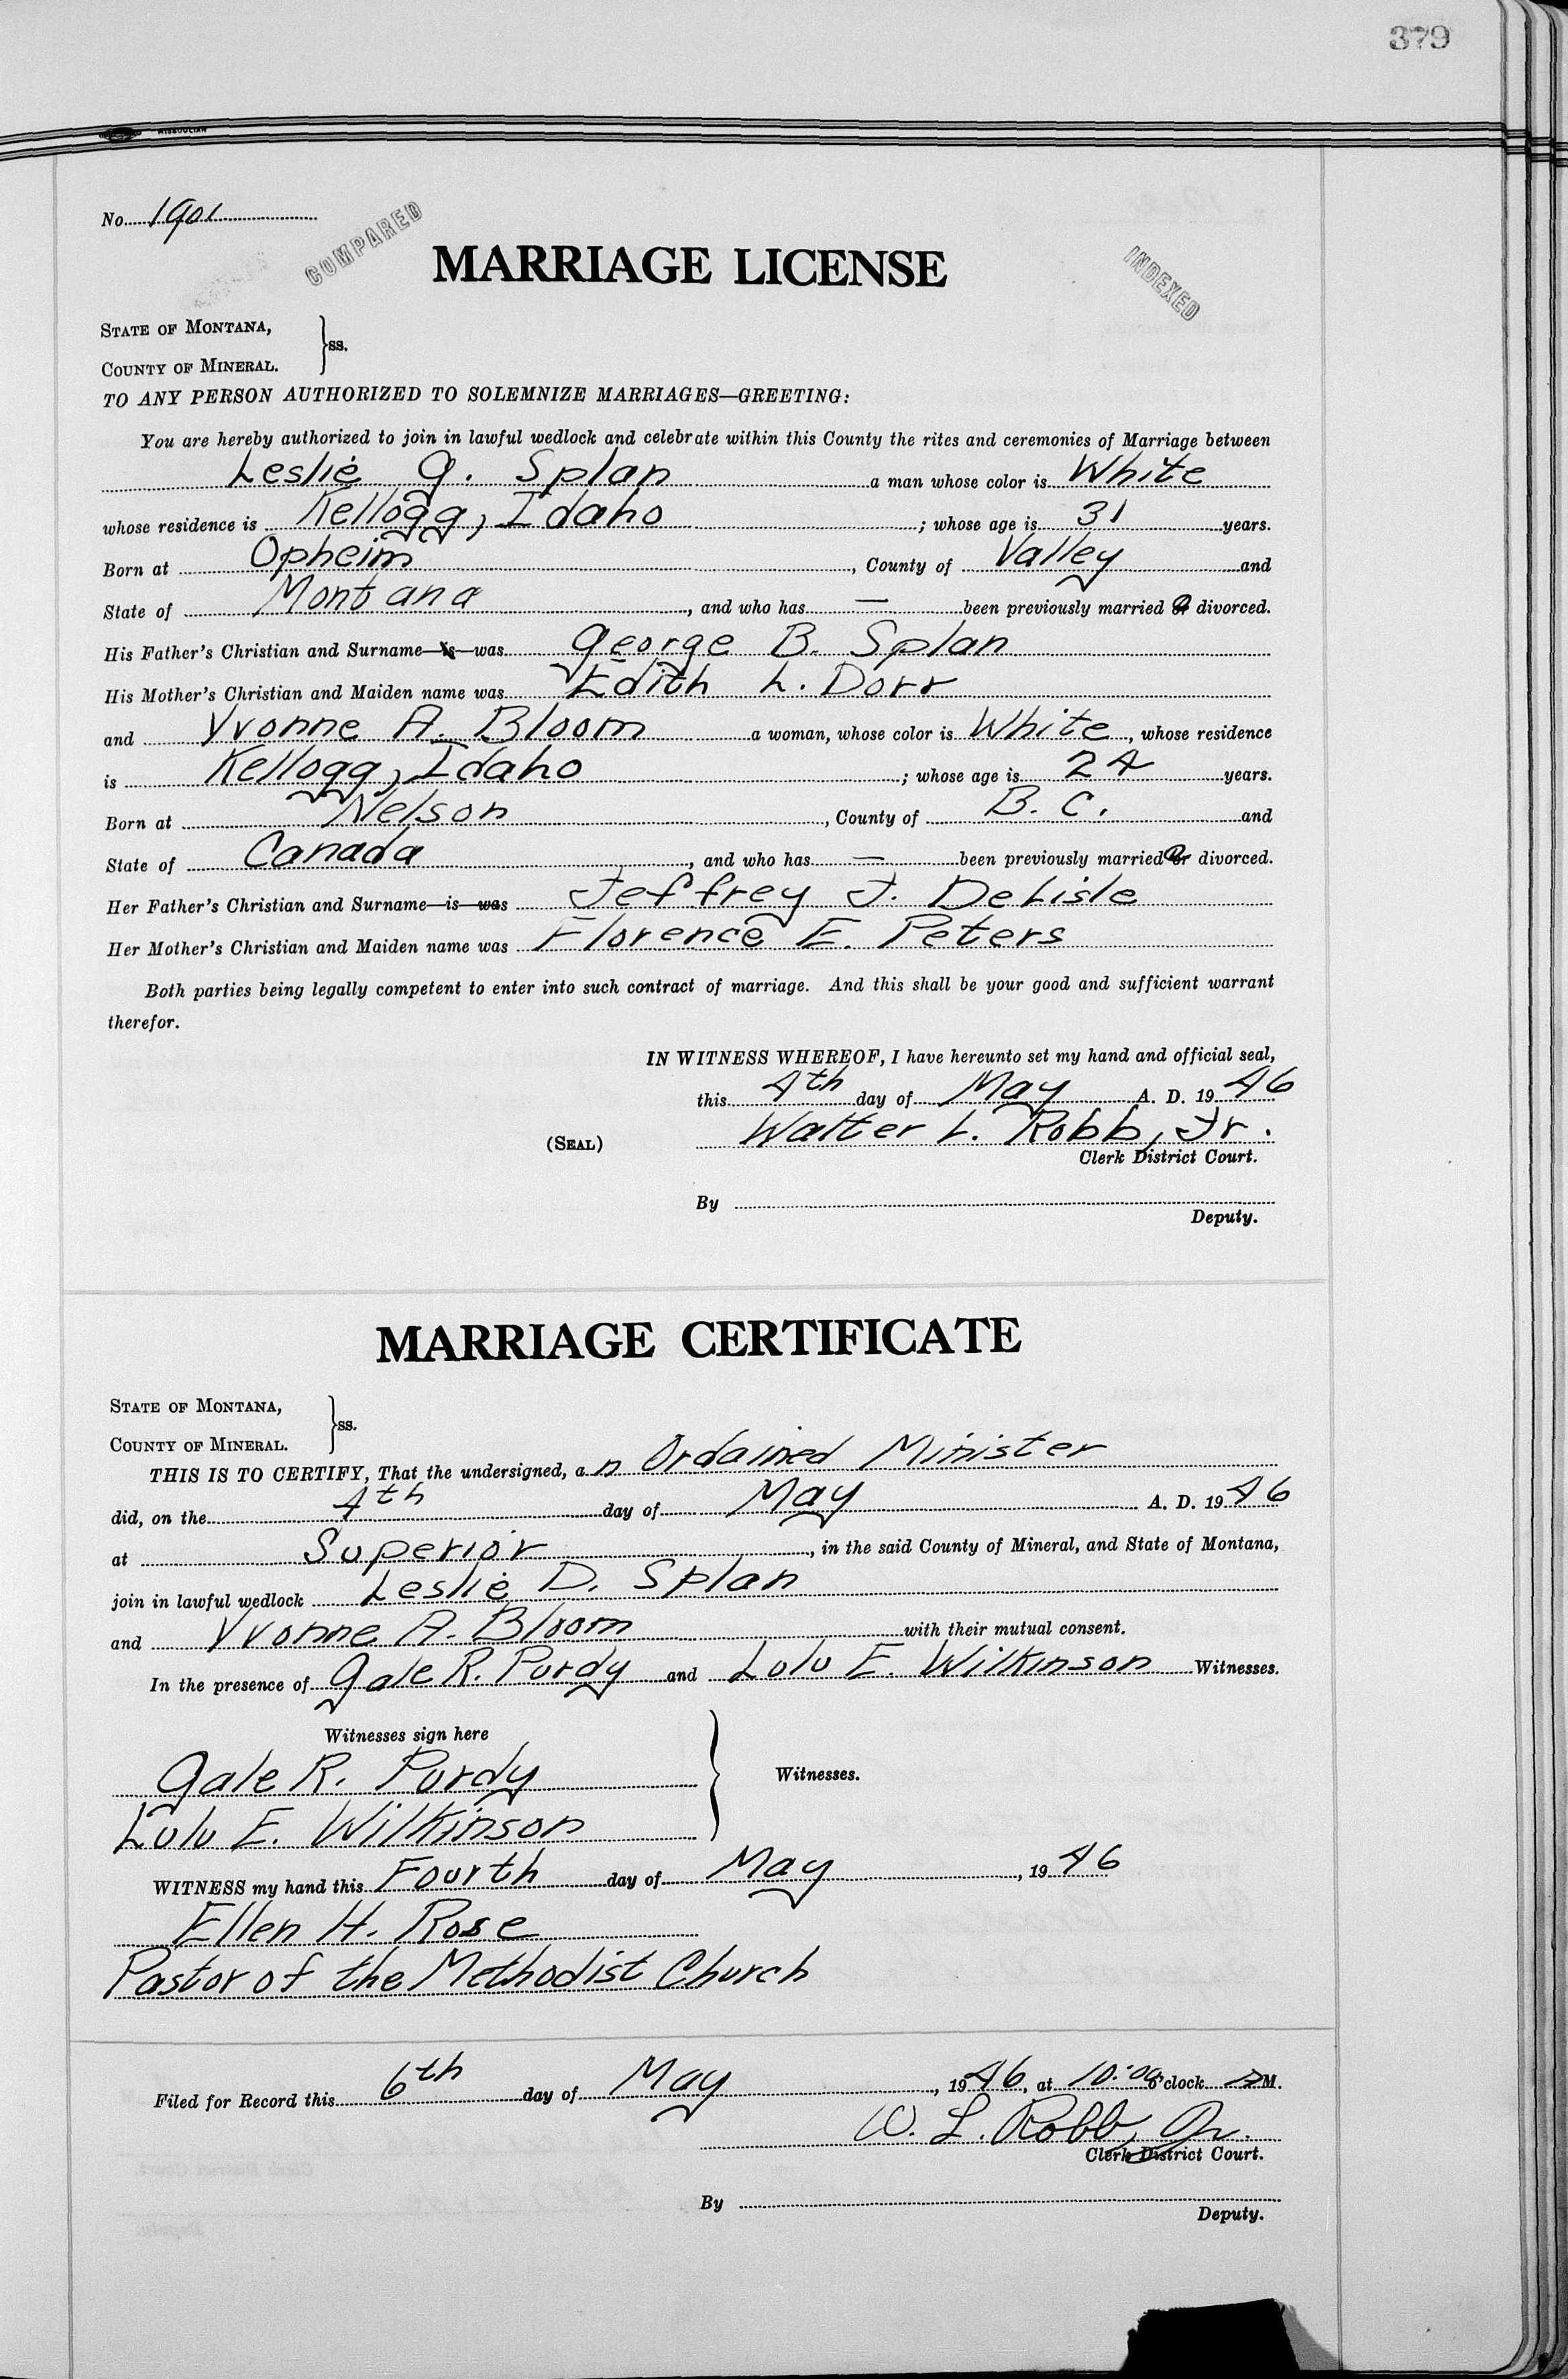 379
MISSOULIAN
No. 1901
COMPARED
INDEXED
MARRIAGE LICENSE
STATE OF MONTANA,
COUNTY OF MINERAL. } ss.
TO ANY PERSON AUTHORIZED TO SOLEMNIZE MARRIAGES—GREETING:
You are hereby authorized to join in lawful wedlock and celebrate within this County the rites and ceremonies of Marriage between
Leslie G. Splan a man whose color is White
whose residence is Kellogg, Idaho ; whose age is 31 years.
Born at Opheim, County of Valley and
State of Montana, and who has — been previously married & divorced.
His Father's Christian and Surname—is—was George B. Splan
His Mother's Christian and Maiden name was Edith L. Dorr
and Yvonne A. Bloom a woman, whose color is White, whose residence
is Kellogg, Idaho ; whose age is 24 years.
Born at Nelson, County of B. C. and
State of Canada, and who has — been previously married & divorced.
Her Father's Christian and Surname—is—was Jeffrey J. DeLisle
Her Mother's Christian and Maiden name was Florence E. Peters
Both parties being legally competent to enter into such contract of marriage. And this shall be your good and sufficient warrant
therefor.
IN WITNESS WHEREOF, I have hereunto set my hand and official seal,
this 4th day of May A. D. 1946
(SEAL) Walter L. Robb, Jr.
Clerk District Court.
By
Deputy.
MARRIAGE CERTIFICATE
STATE OF MONTANA,
COUNTY OF MINERAL. } ss.
THIS IS TO CERTIFY, That the undersigned, an Ordained Minister
did, on the 4th day of May A. D. 1946
at Superior, in the said County of Mineral, and State of Montana,
join in lawful wedlock Leslie D. Splan
and Yvonne A. Bloom with their mutual consent.
In the presence of Gale R. Purdy and Lulu E. Wilkinson Witnesses.
Witnesses sign here
Gale R. Purdy
Witnesses.
Lulu E. Wilkinson
WITNESS my hand this Fourth day of May, 1946
Ellen H. Rose
Pastor of the Methodist Church
Filed for Record this 6th day of May, 1946, at 10:00 o'clock A M.
W. L. Robb, Jr.
Clerk District Court.
By
Deputy.